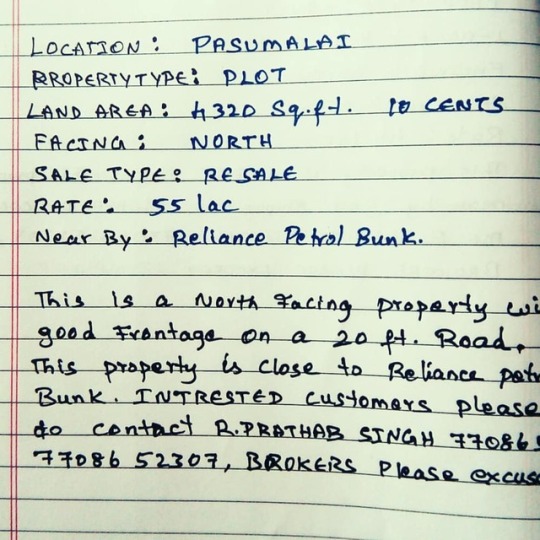 LOCATION: PASUMALAI
PROPERTYTYPE: PLOT
LAND AREA: 4320 Sq.ft. 10 CENTS
FACING: NORTH
SALE TYPE: RESALE
RATE: 55 lac
Near By: Reliance Petrol Bunk.
This is a North Facing property wi
good Frontage on a 20 ft. Road.
This property is close to Reliance pet
Bunk. INTRESTED customers please
do contact R.PRATHAB SINGH 77086
77086 52307, BROKERS Please excus